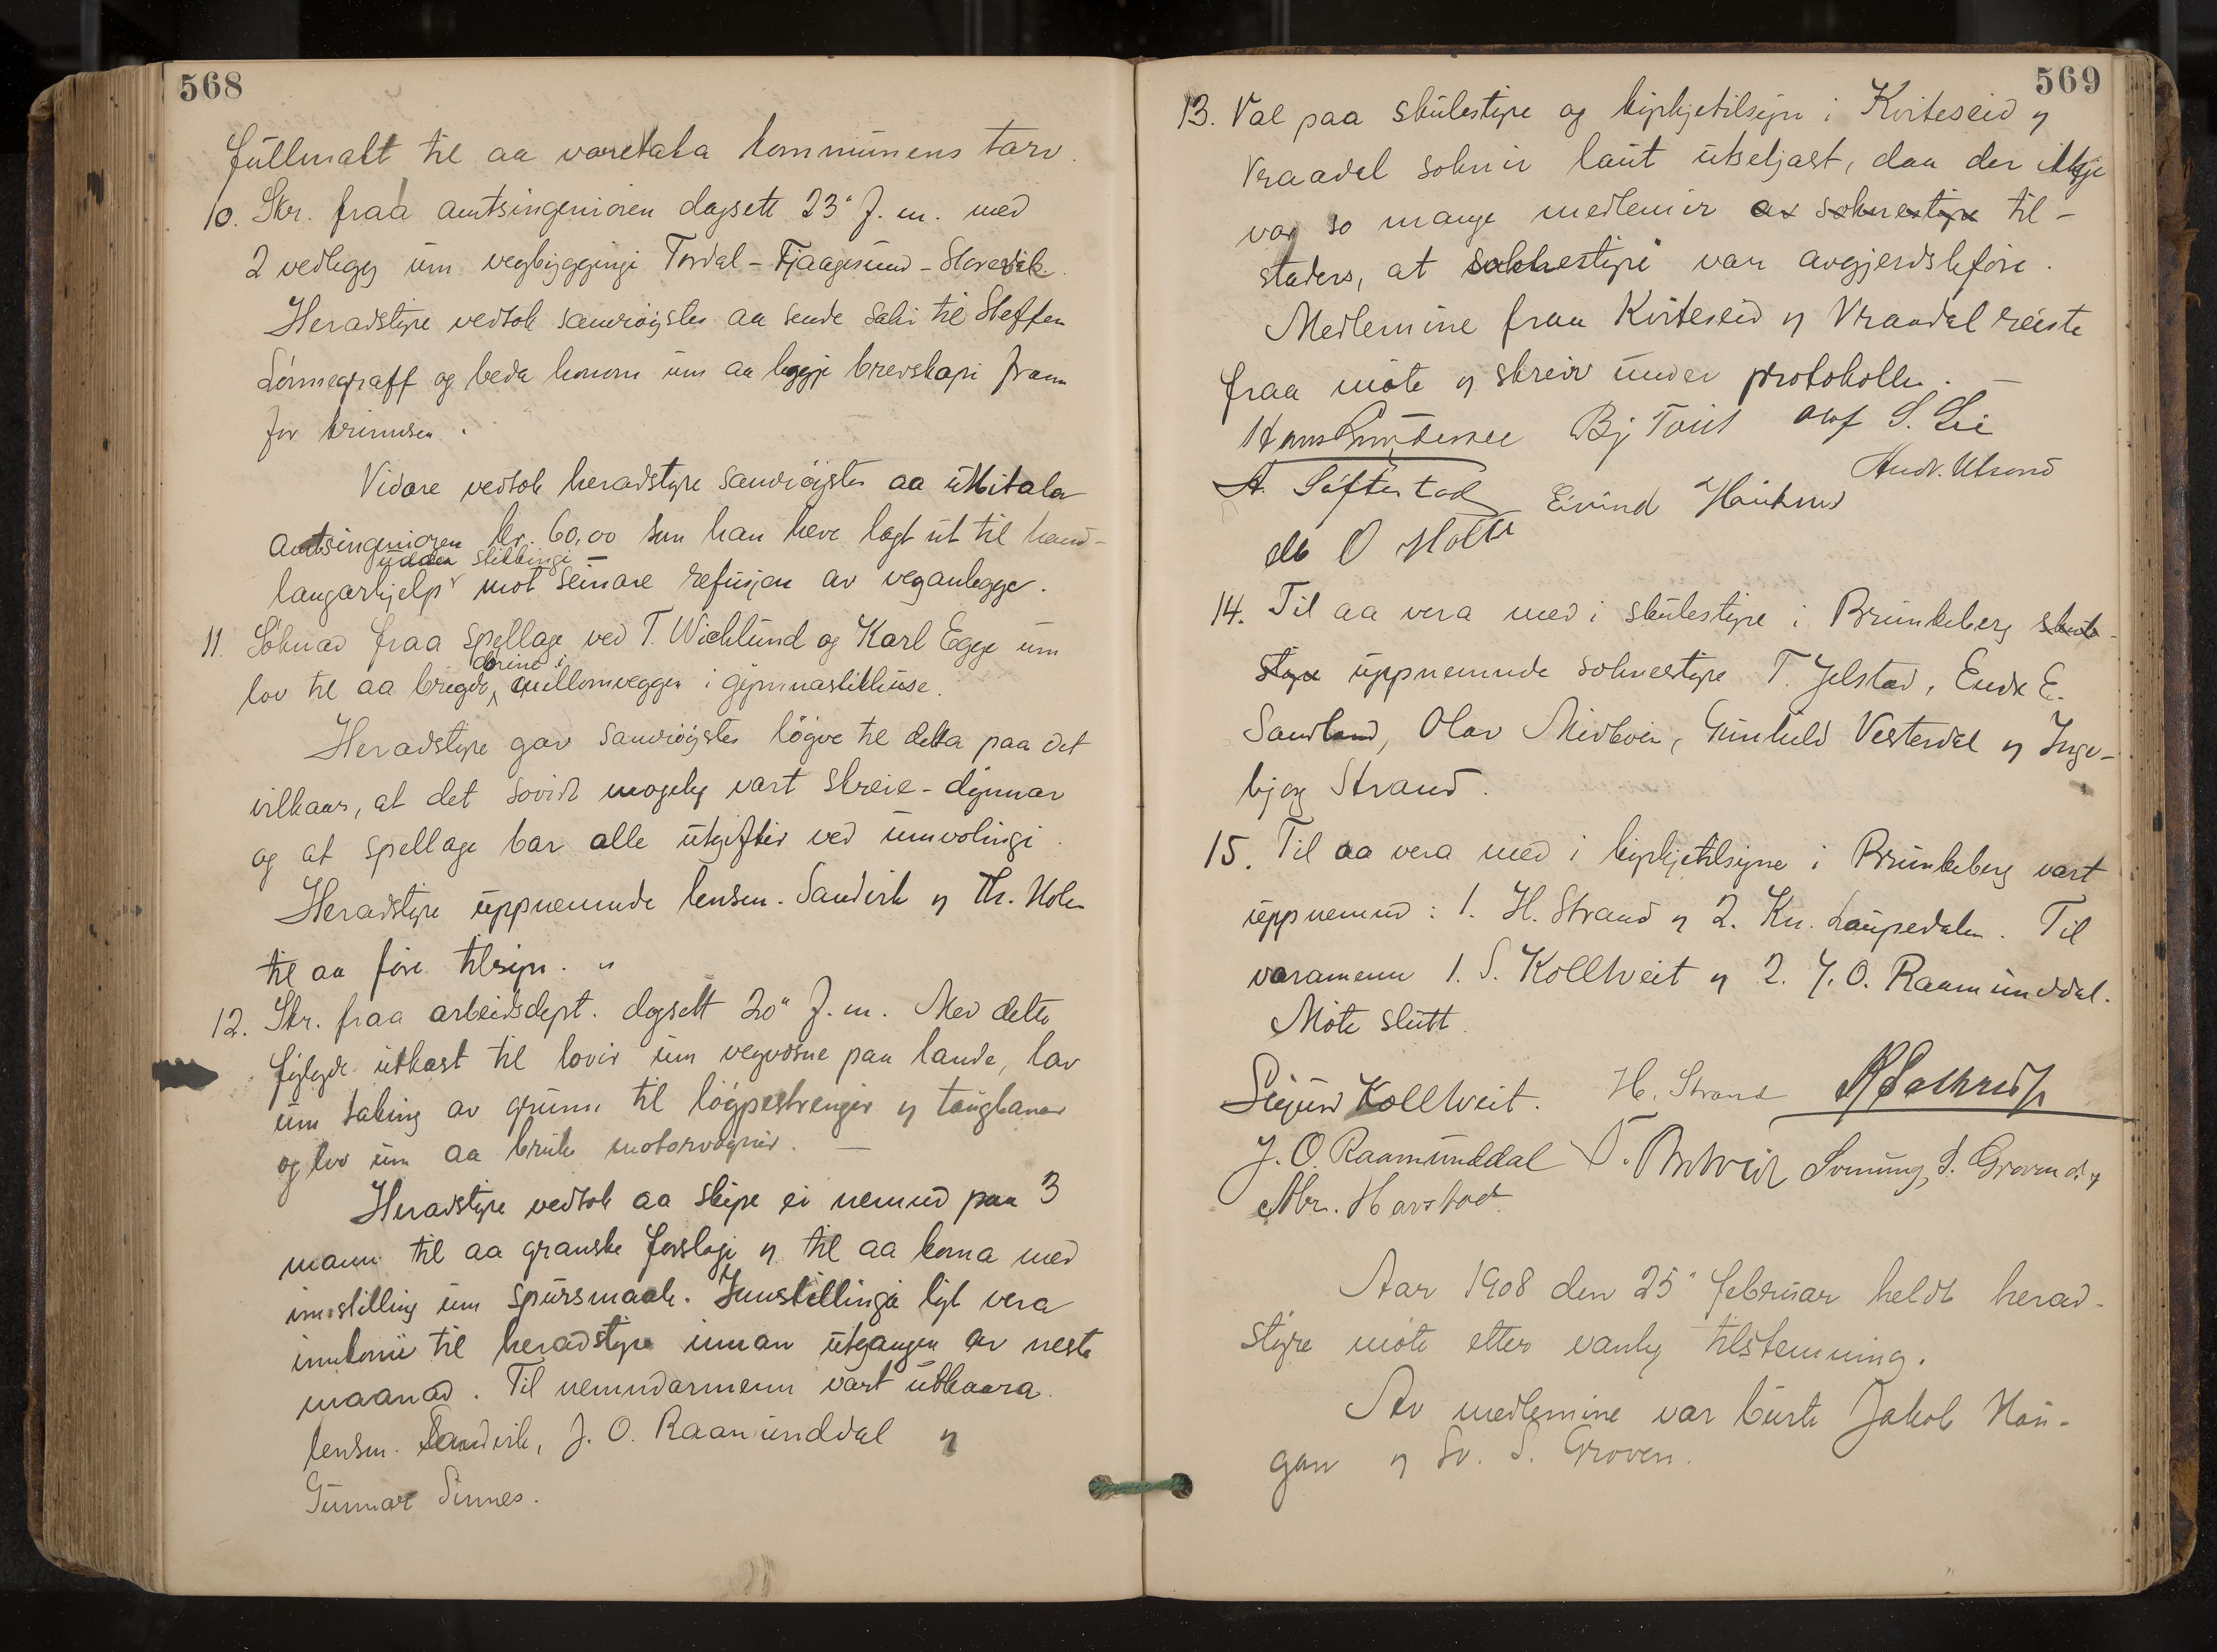 568
fullmakt til aa varetaka kommunens tarv.
10. Skr. fraa amtsingeniøren dagsett 23" f. m. med
2 vedlegg um vegbyggingi Tordal - Fjaagesund - Skrevik.
Heradstyre vedtok samrøystes aa sende saki til Steffen
Lønnegraff og beda honom um aa leggje brevskapi fram
for
Vidare vedtok heradstyre samrøystes aa utbitala
amtsingeniøren kr. 60,00 som han heve lagt ut til hand-
udden stikkingi
langarhjelp mot seinare refusjon av veganlegge.
11. Søknad fraa spellage ved T. Wichlund og Karl Egge um
dørine i
lov til aa brigda millomveggen i gymnastikkhuse.
Heradstyre gav samrøystes løgve til detta paa det
vilkaar, at det sovidt mogeleg vart skreie-dynnar
og at spellage bar alle utgifter ved umvølingi.
Heradstyre uppnemnde lensm. Sandvik og Th. Holen
til aa føre tilsyn. "
12. Skr. fraa arbeidsdept. dagsett 20" f. m. Med dette
fylgde utkast til lovir um vegvøsne paa lande, lov
um taking av grunn til løypestrenger og taugbanar
og lov um aa bruke motorvogner. —
Heradstyre vedtok aa skipe ei nemnd paa 3
mann til aa granske forslagi og til aa koma med
innstilling um spursmaale. Innstillingi lyt vera
innkomi til heradstyre innan utgangen av neste
maanad. Til nemndarmenn vart utkaara
lensm. Sandvik, J. O. Raamunddal og
Gunnar Sinnes.
569
13. Val paa skulestyre og kyrkjetilsyn i Kviteseid og
Vraadal soknir laut utsetjast, daa der ikkje
var so mange medlemir av soknestyre til-
stades, at soknestyri var avgjerdsføre.
Medlemine fraa Kviteseid og Vraadal reiste
fraa møte og skreiv under protokollen. —
Bj Tveit Olaf S. Lie
A. Søftestad Eivind Haukum Andr. Utsond
O Holte
14. Til aa vera med i skulestyre i Brunkeberg skule-
styre uppnemnde soknestyre T. Jelstad, Endr. E.
Sandland, Olav Midbøen, Gunhild Vesterdal og Inge-
bjorg Strand.
15. Til aa vera med i kyrkjetilsyne i Brunkeberg vart
uppnemnd: 1. H. Strand og 2. Kn. Laupedalen. Til
varamenn 1. S. Kolltveit og 2. J. O. Raamunddal.
Møte slutt.
Sigurd Kolltveit. H. Strand
J. O. Raamunddal Svenung S. Groven
Abr. Havstad.
Aar 1908 den 25" februar heldt herad-
styre møte etter vanleg tilstemning.
Av medlemine var burte Jakob Hau-
gan og Sv. S. Groven.